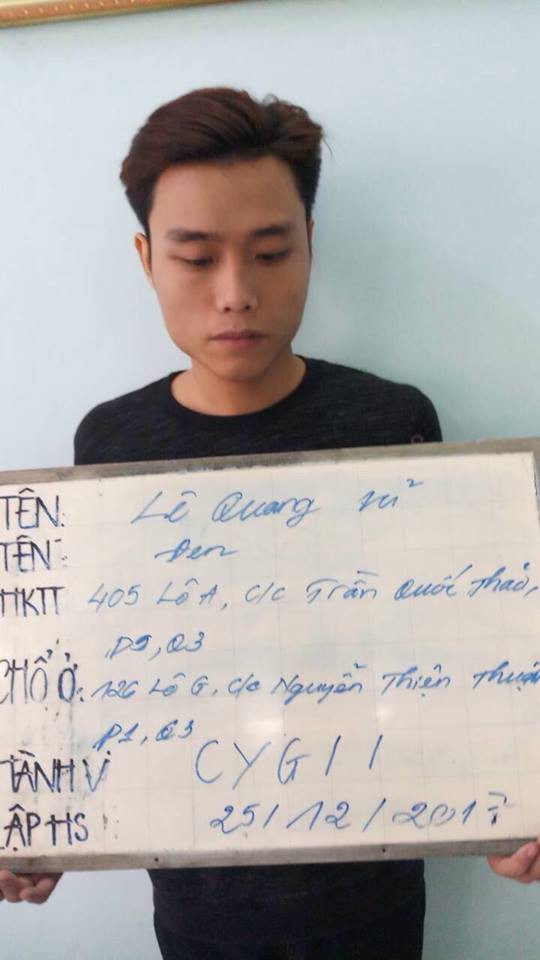 TÊN: Lê Quang
TÊN: Đen
HKTT 405 Lô A, c/c Trần Quốc Thảo,
P9, Q3
CHỖ Ở: 126 Lô G, c/c Nguyễn Thiện Thuật
P1, Q3
TÀNH VI CYGTT
LẬP HS 25/12/2017